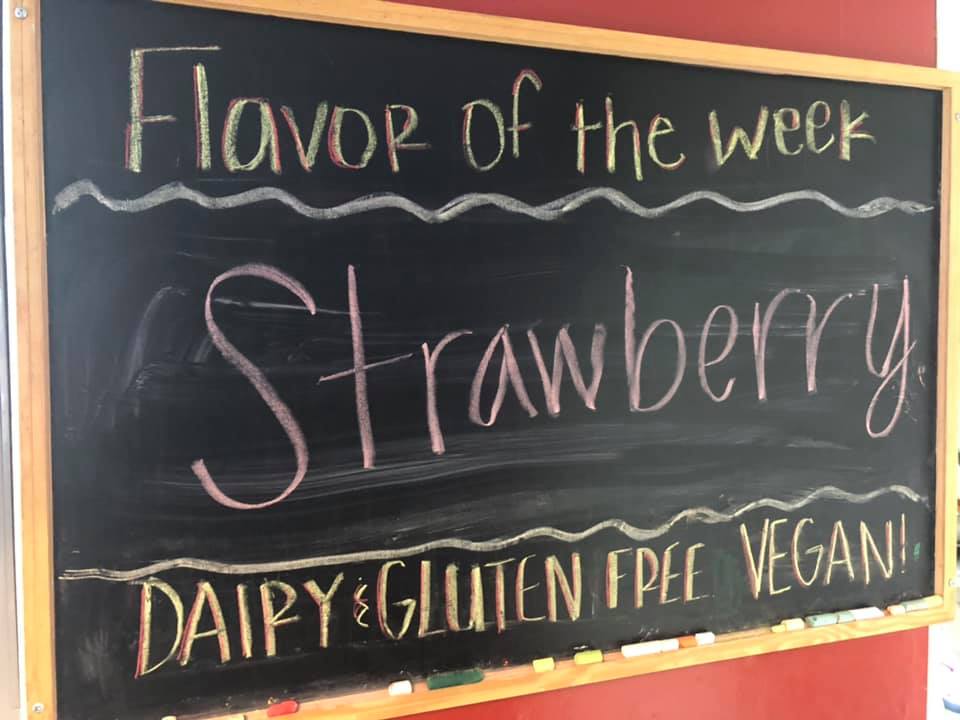 Flavor of the week
Strawberry
DAIRY & GLUTEN FREE VEGAN!